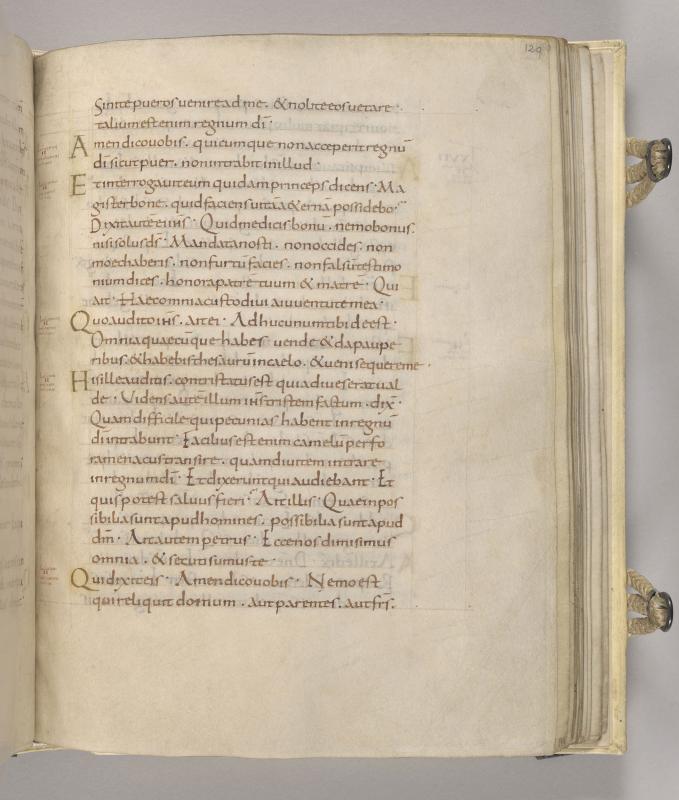 129
Sinite pueros venire ad me. & nolite eos vetare.
talium est enim regnum dī.
Amen dico vobis. quicumque non acceperit regnū
dī sicut puer. non intrabit in illud.
Et interrogavit eum quidam princeps dicens. Ma
gister bone. quid faciens vitā &ernā possidebo.
Dixit autē ei ihs. Quid me dicis bonū. nemo bonus.
nisi solus ds. Mandata nosti. non occides. non
moechaberis. non furtū facies. non falsū testimo
nium dices. honora patrē tuum & matrē. Qui
ait. Haec omnia custodivi a iuventute mea.
Quo audito ihs. ait ei. Adhuc unum tibi deest.
Omnia quaecūque habes vende & da paupe
ribus. & habebis thesaurū in caelo. & veni sequere me.
His ille auditis. contristatus est quia dives erat val
de. Videns autē illum ihs tristem factum. dix̄.
Quam difficile qui pecunias habent in regnū
dī intrabunt. Facilius est enim camelū per fo
ramen acus transire. quam divitem intrare
in regnum dī. Et dixerunt qui audiebant. Et
quis potest salvus fieri. Ait illis. Quae inpos
sibilia sunt apud homines. possibilia sunt apud
dm̄. Ait autem petrus. Ecce nos dimisimus
omnia. & secuti sumus te.
Qui dixit eis. Amen dico vobis. Nemo est
qui reliquit domum. aut parentes. aut frs̄.